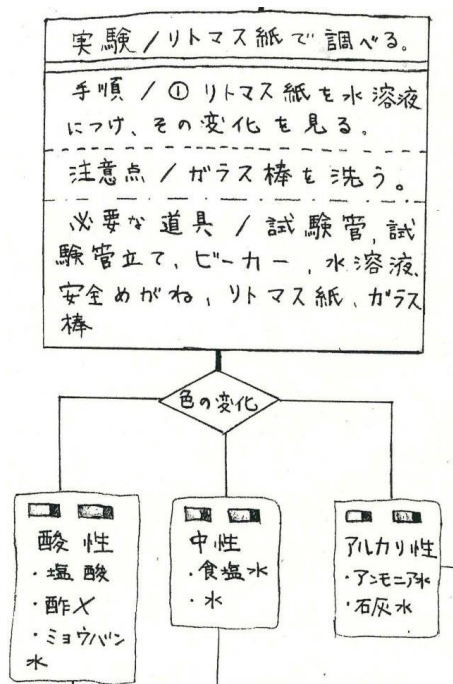 実験/リトマス紙で調べる。
手順/①リトマス紙を水溶液
につけ、その変化を見る。
注意点/ガラス棒を洗う。
必要な道具/試験管,試
験管立て、ビーカー,水溶液、
安全めがね,リトマス紙,ガラス
棒
色の変化
酸性
・塩酸
・酢×
・ミョウバン
水
中性
・食塩水
・水
アルカリ性
・アンモニア水
・石灰水